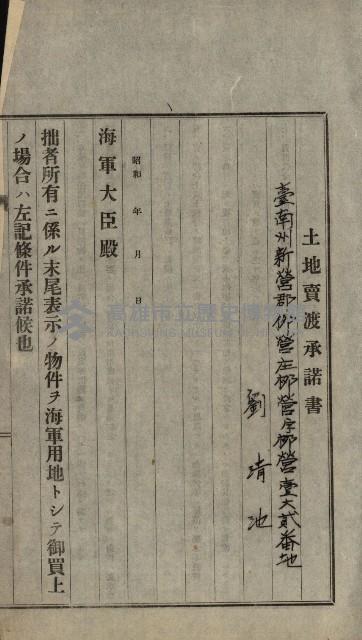 土地賣渡承諾書
臺南州新營郡柳營庄柳營字柳營壹六貳番地
劉清池
昭和 年 月 日
海軍大臣殿
拙者所有ニ係ル末尾表示ノ物件ヲ海軍用地トシテ御買上
ノ場合ハ左記條件承諾候也
高雄市立歷史博物館